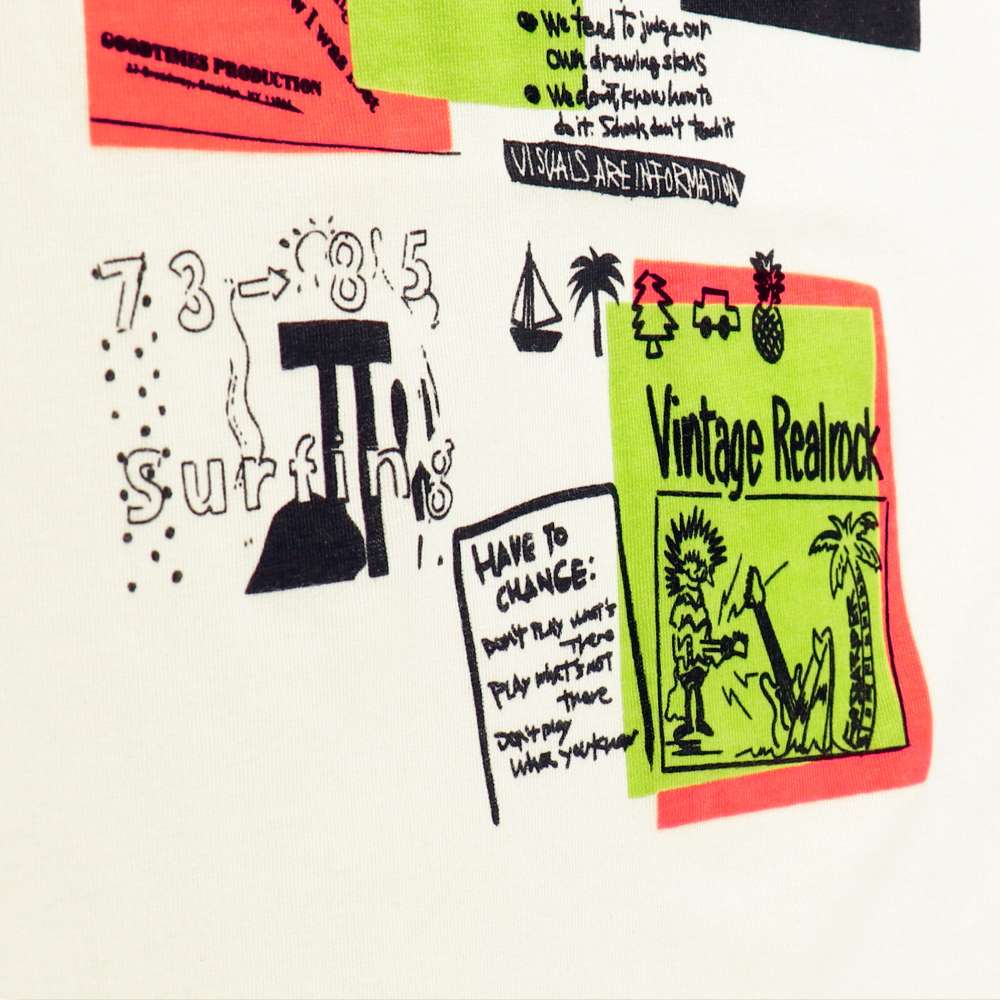 GOODTIMES PRODUCTION
w I was
We tend to judge our
own drawing skills
We don't know how to
do it. Schools don't teach it
VISUALS ARE INFORMATION
73 → 85
Surfing
HAVE TO
CHANGE:
DON'T PLAY WHAT'S
THERE
PLAY WHAT'S NOT
there
Don't play
what you know
Vintage Realrock